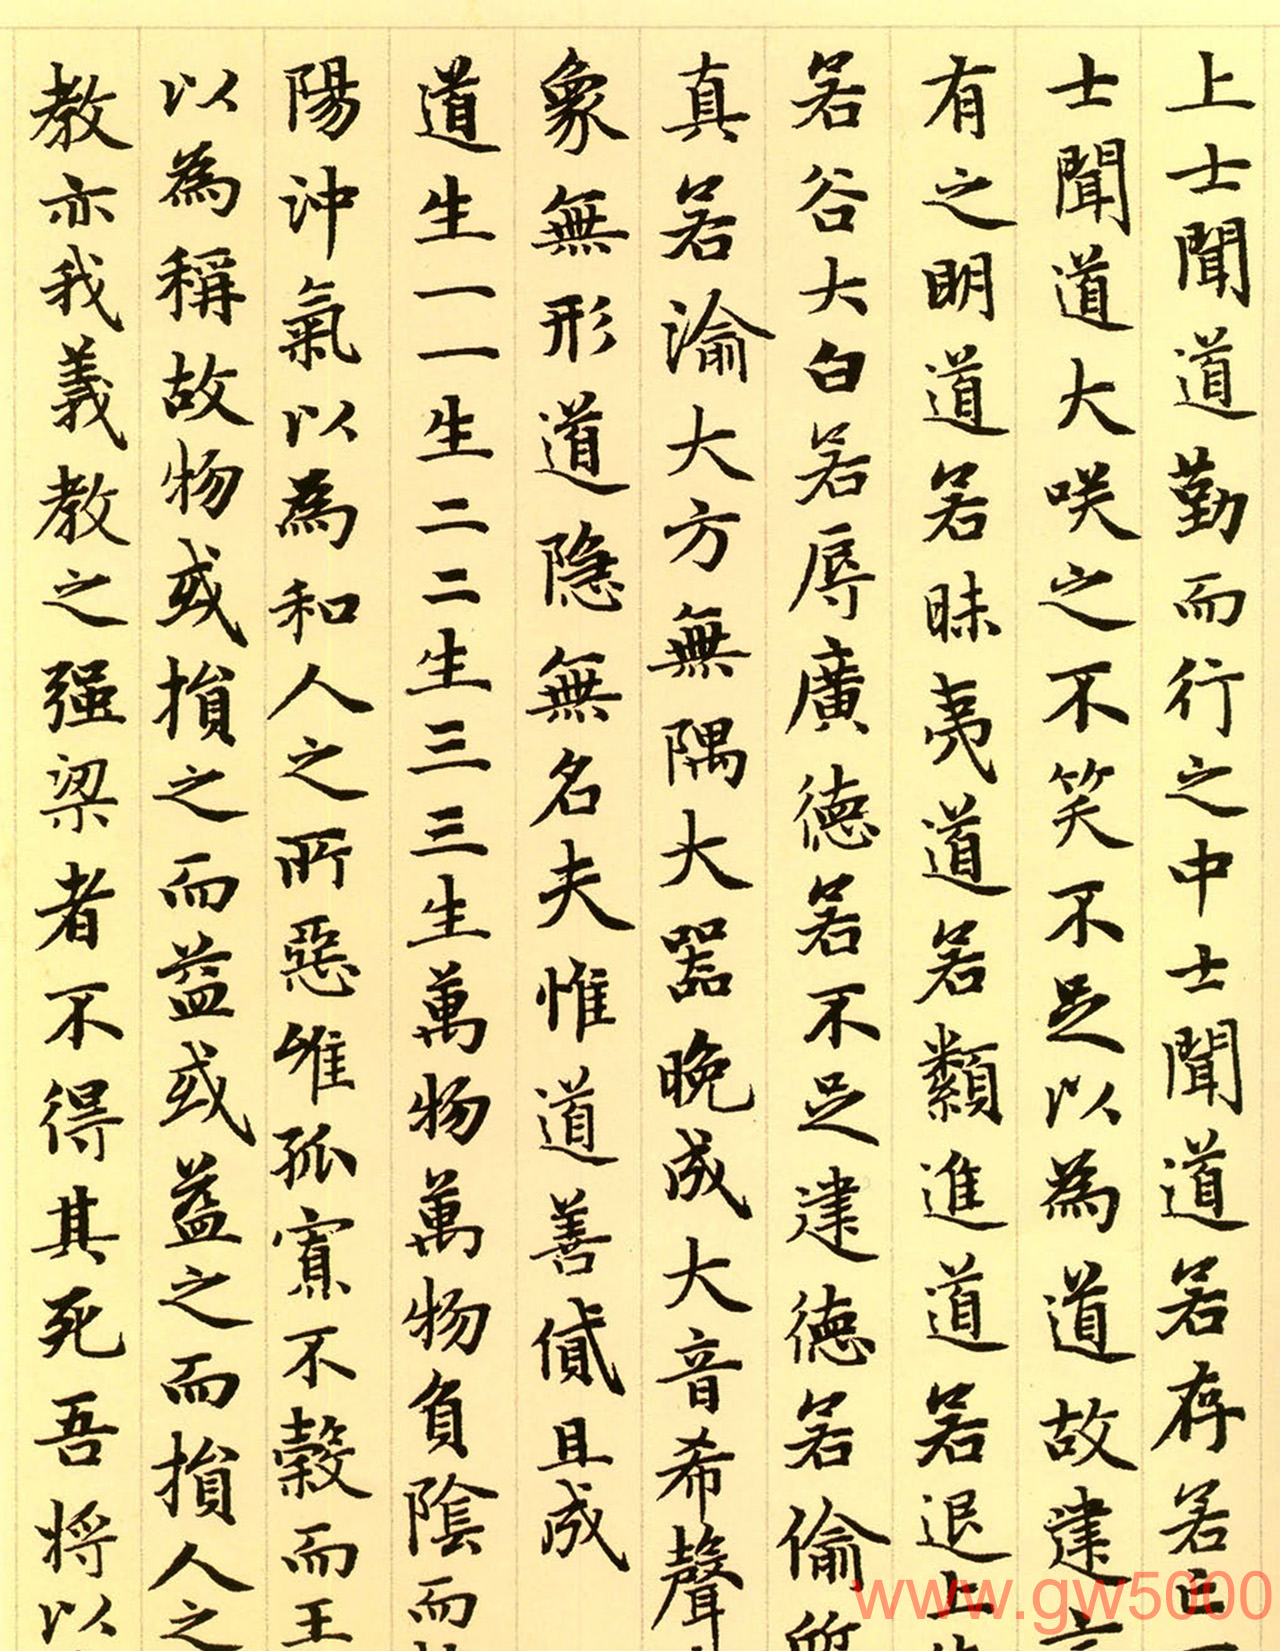 上士聞道勤而行之中士聞道若存若亡
士聞道大咲之不笑不足以為道故建言
有之明道若昧夷道若纇進道若退上
若谷大白若辱廣德若不足建德若偷質
真若渝大方無隅大器晚成大音希聲
象無形道隐無名夫惟道善貸且成
道生一一生二二生三三生萬物萬物負陰而
陽沖氣以為和人之所惡唯孤寡不穀而王
以為稱故物或損之而益或益之而損人之
教亦我義教之强梁者不得其死吾将以
www.gw5000